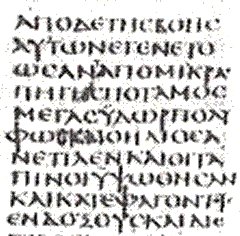 ΑΠΟΔΕΤΗϹΒΟΗϹ
ΑΥΤΩΝΕΓΕΝΕΤΟ
ΩϹΑΝΑΠΟΜΙΚΡΑ
ΠΗΓΗϹΠΟΤΑΜΟϹ
ΜΕΓΑϹΥΔΩΡΠΟΛΥ
ΦΩϹΚΑΙΟΗΛΙΟϹΑ
ΝΕΤΙΛΕΝΚΑΙΟΙΤΑ
ΠΙΝΟΙΥΨΩΘΗϹΑΝ
ΚΑΙΚΑΤΕΦΑΓΟΝΤΟΥϹ
ΕΝΔΟΞΟΥϹΚΑΙΔΙΕ